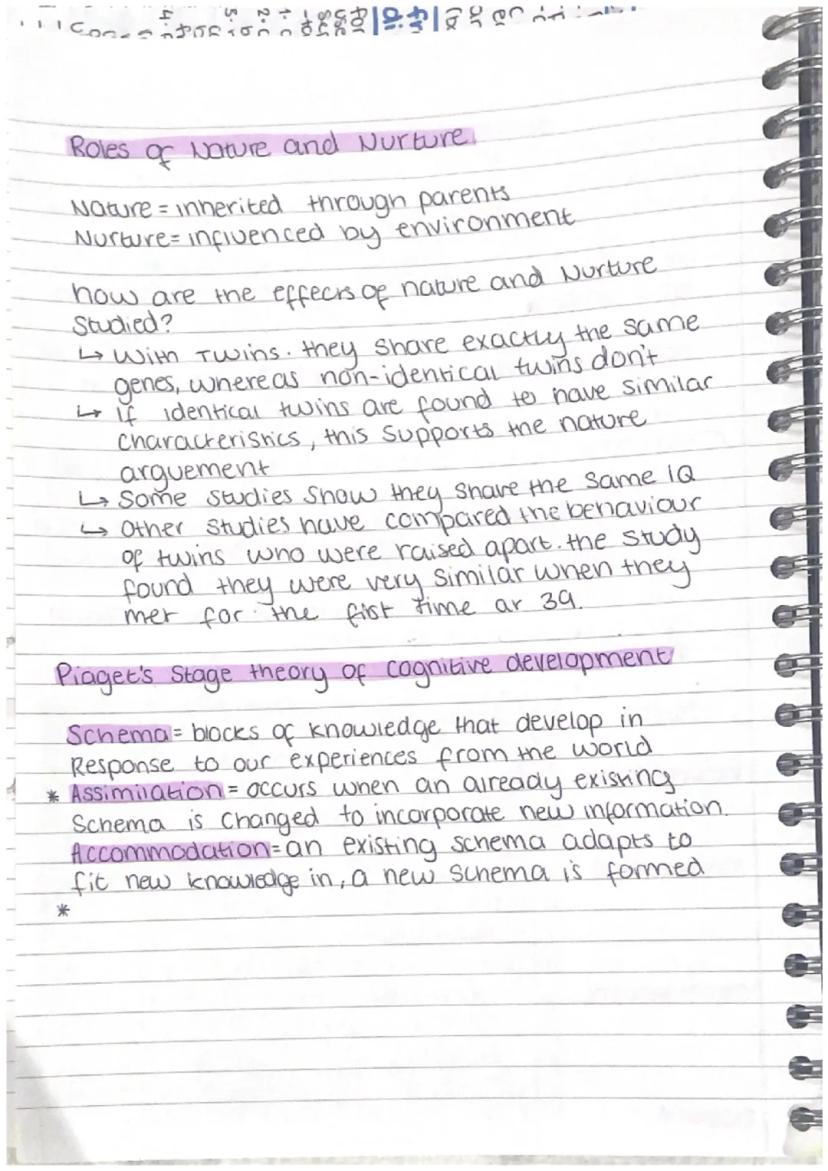 Roles of Nature and Nurture.
Nature = inherited through parents
Nurture = influenced by environment
how are the effects of nature and Nurture
Studied?
↳ With Twins. they share exactly the same
genes, whereas non-identical twins don't
↳ If identical twins are found to have similar
characteristics, this supports the nature
arguement
↳ Some studies show they share the same IQ
↳ Other studies have compared the behaviour
of twins who were raised apart. the study
found they were very similar when they
met for the fist time at 39.
Piaget's Stage theory of cognitive development
Schema = blocks of knowledge that develop in
Response to our experiences from the world
* Assimilation = occurs when an already existing
Schema is changed to incorporate new information.
Accommodation = an existing schema adapts to
fit new knowledge in, a new schema is formed
*